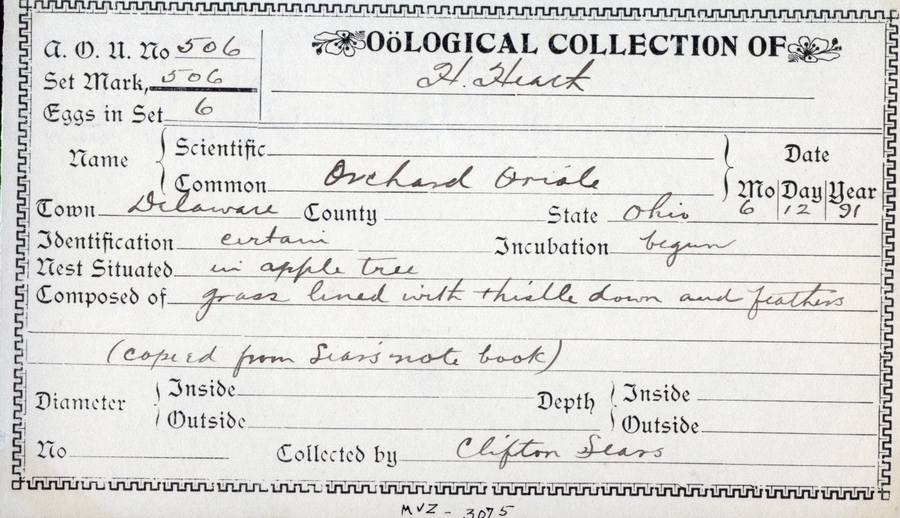 A. O. U. No 506
OöLOGICAL COLLECTION OF
Set Mark, 506
H. Heaik
Eggs in Set 6
Name
Scientific
Common Orchard Oriole
Date
Mo Day Year
6 12 91
Town Delaware County State Ohio
Identification certain Incubation begun
Nest Situated in apple tree
Composed of grass lined with thistle down and feathers
(copied from Sears note book)
Diameter
Inside
Outside
Depth
Inside
Outside
No Collected by Clifton Sears
MVZ - 3075